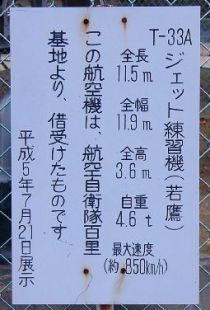 T-33A
ジェット練習機(若鷹)
全長 11.5m
全幅 11.9m
全高 3.6m
自重 4.6t
最大速度(約850km/h)
この航空機は、航空自衛隊百里
基地より、借受けたものです
平成5年7月21日展示